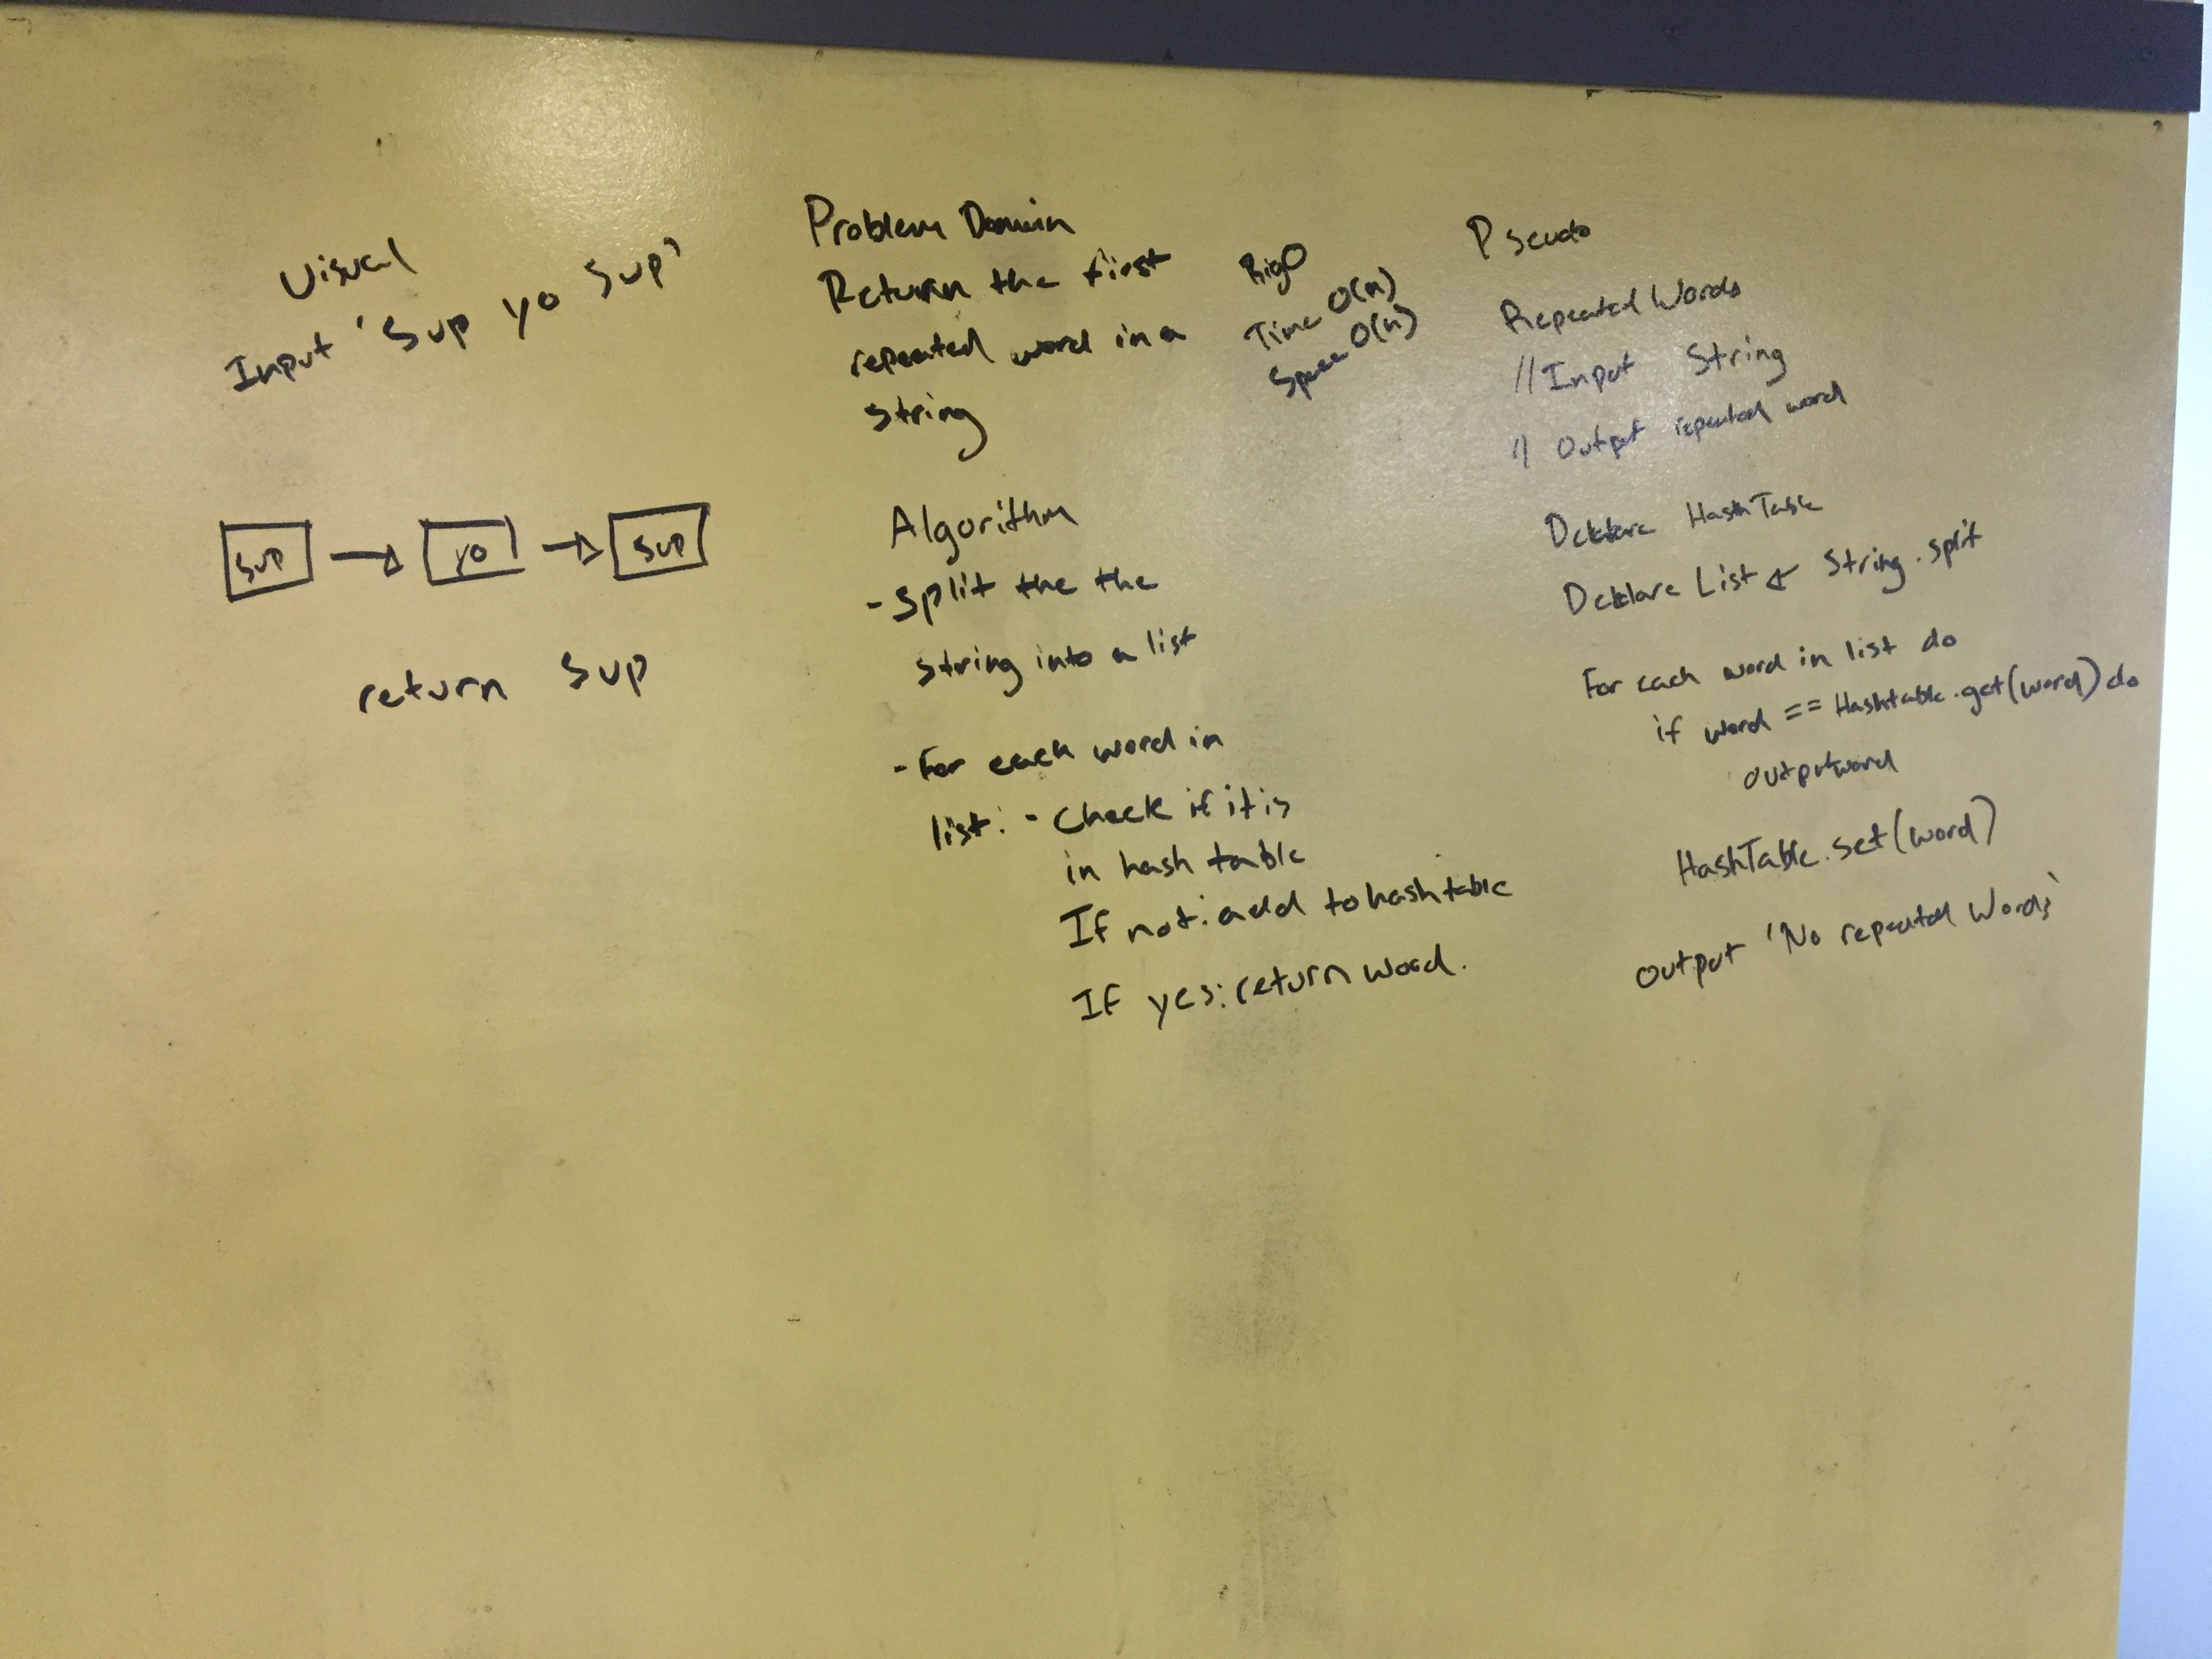 Visual
Input 'Sup yo Sup'
Sup → yo → Sup
return Sup
Problem Domain
Return the first
repeated word in a
string
BigO
Time O(n)
Space O(n)
Algorithm
- Split the the
string into a list
- For each word in
list: - Check if it is
in hash table
If not: add to hash table
If yes: return word.
Pseudo
Repeated Words
//Input String
// Output repeated word
Declare HashTable
Declare List ← String.split
For each word in list do
if word == Hashtable.get(word) do
output word
HashTable.set(word)
output 'No repeated Words'